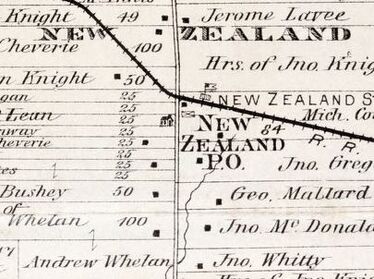 Knight 49
Jerome Lavee
NEW ZEALAND
Cheverie 100
Hrs. of Jno. Knig
n Knight 50
gan 25
NEW ZEALAND S
Lean 25
Mich. Co
nway 25
NEW ZEALAND P.O.
84
R. R.
heverie 25
25
25
Jno. Greg
tes 25
Bushey 50
Geo. Mallard
of
Whelan 100
Jno. Mc Donald
Andrew Whelan
Jno. Whitty